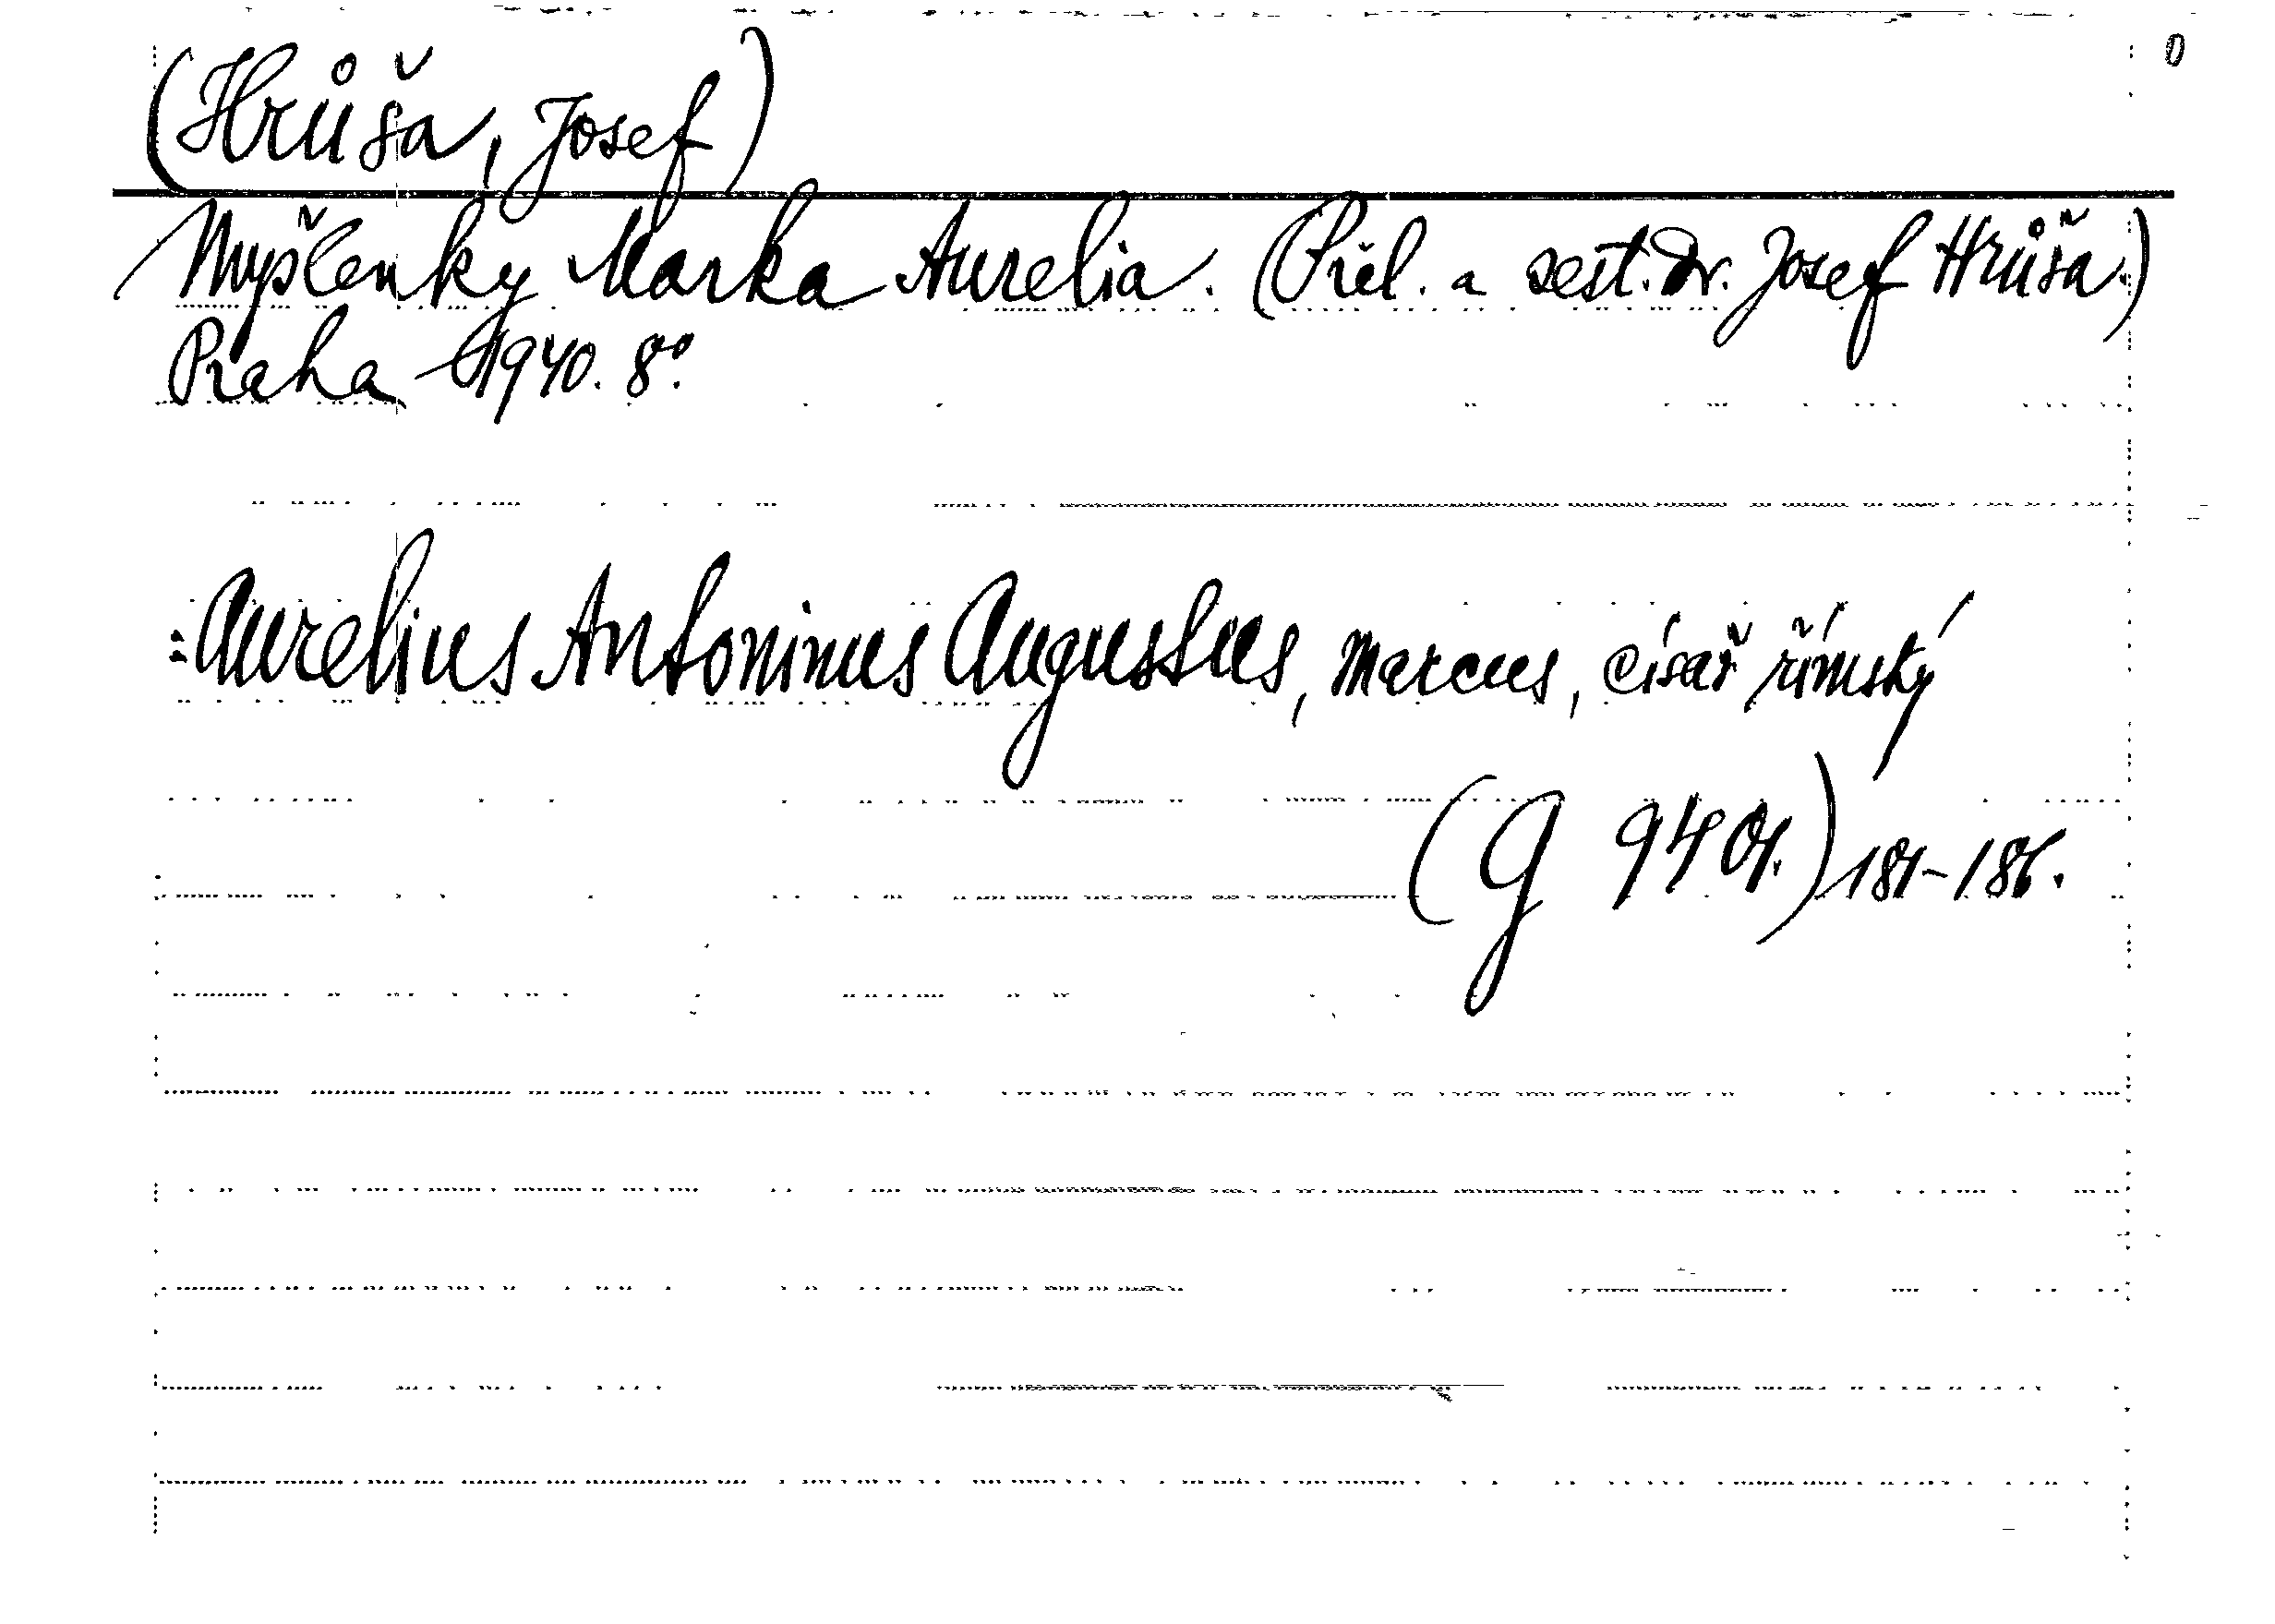 0
(Hrůša, Josef)
Myšlenky Marka Aurelia. (Přel. a sest. Dr. Josef Hrůša.)
Praha 1940. 8°.
=Aurelius Antoninus Augustus, Marcus, císař římský
(G 9401.) 181-186.